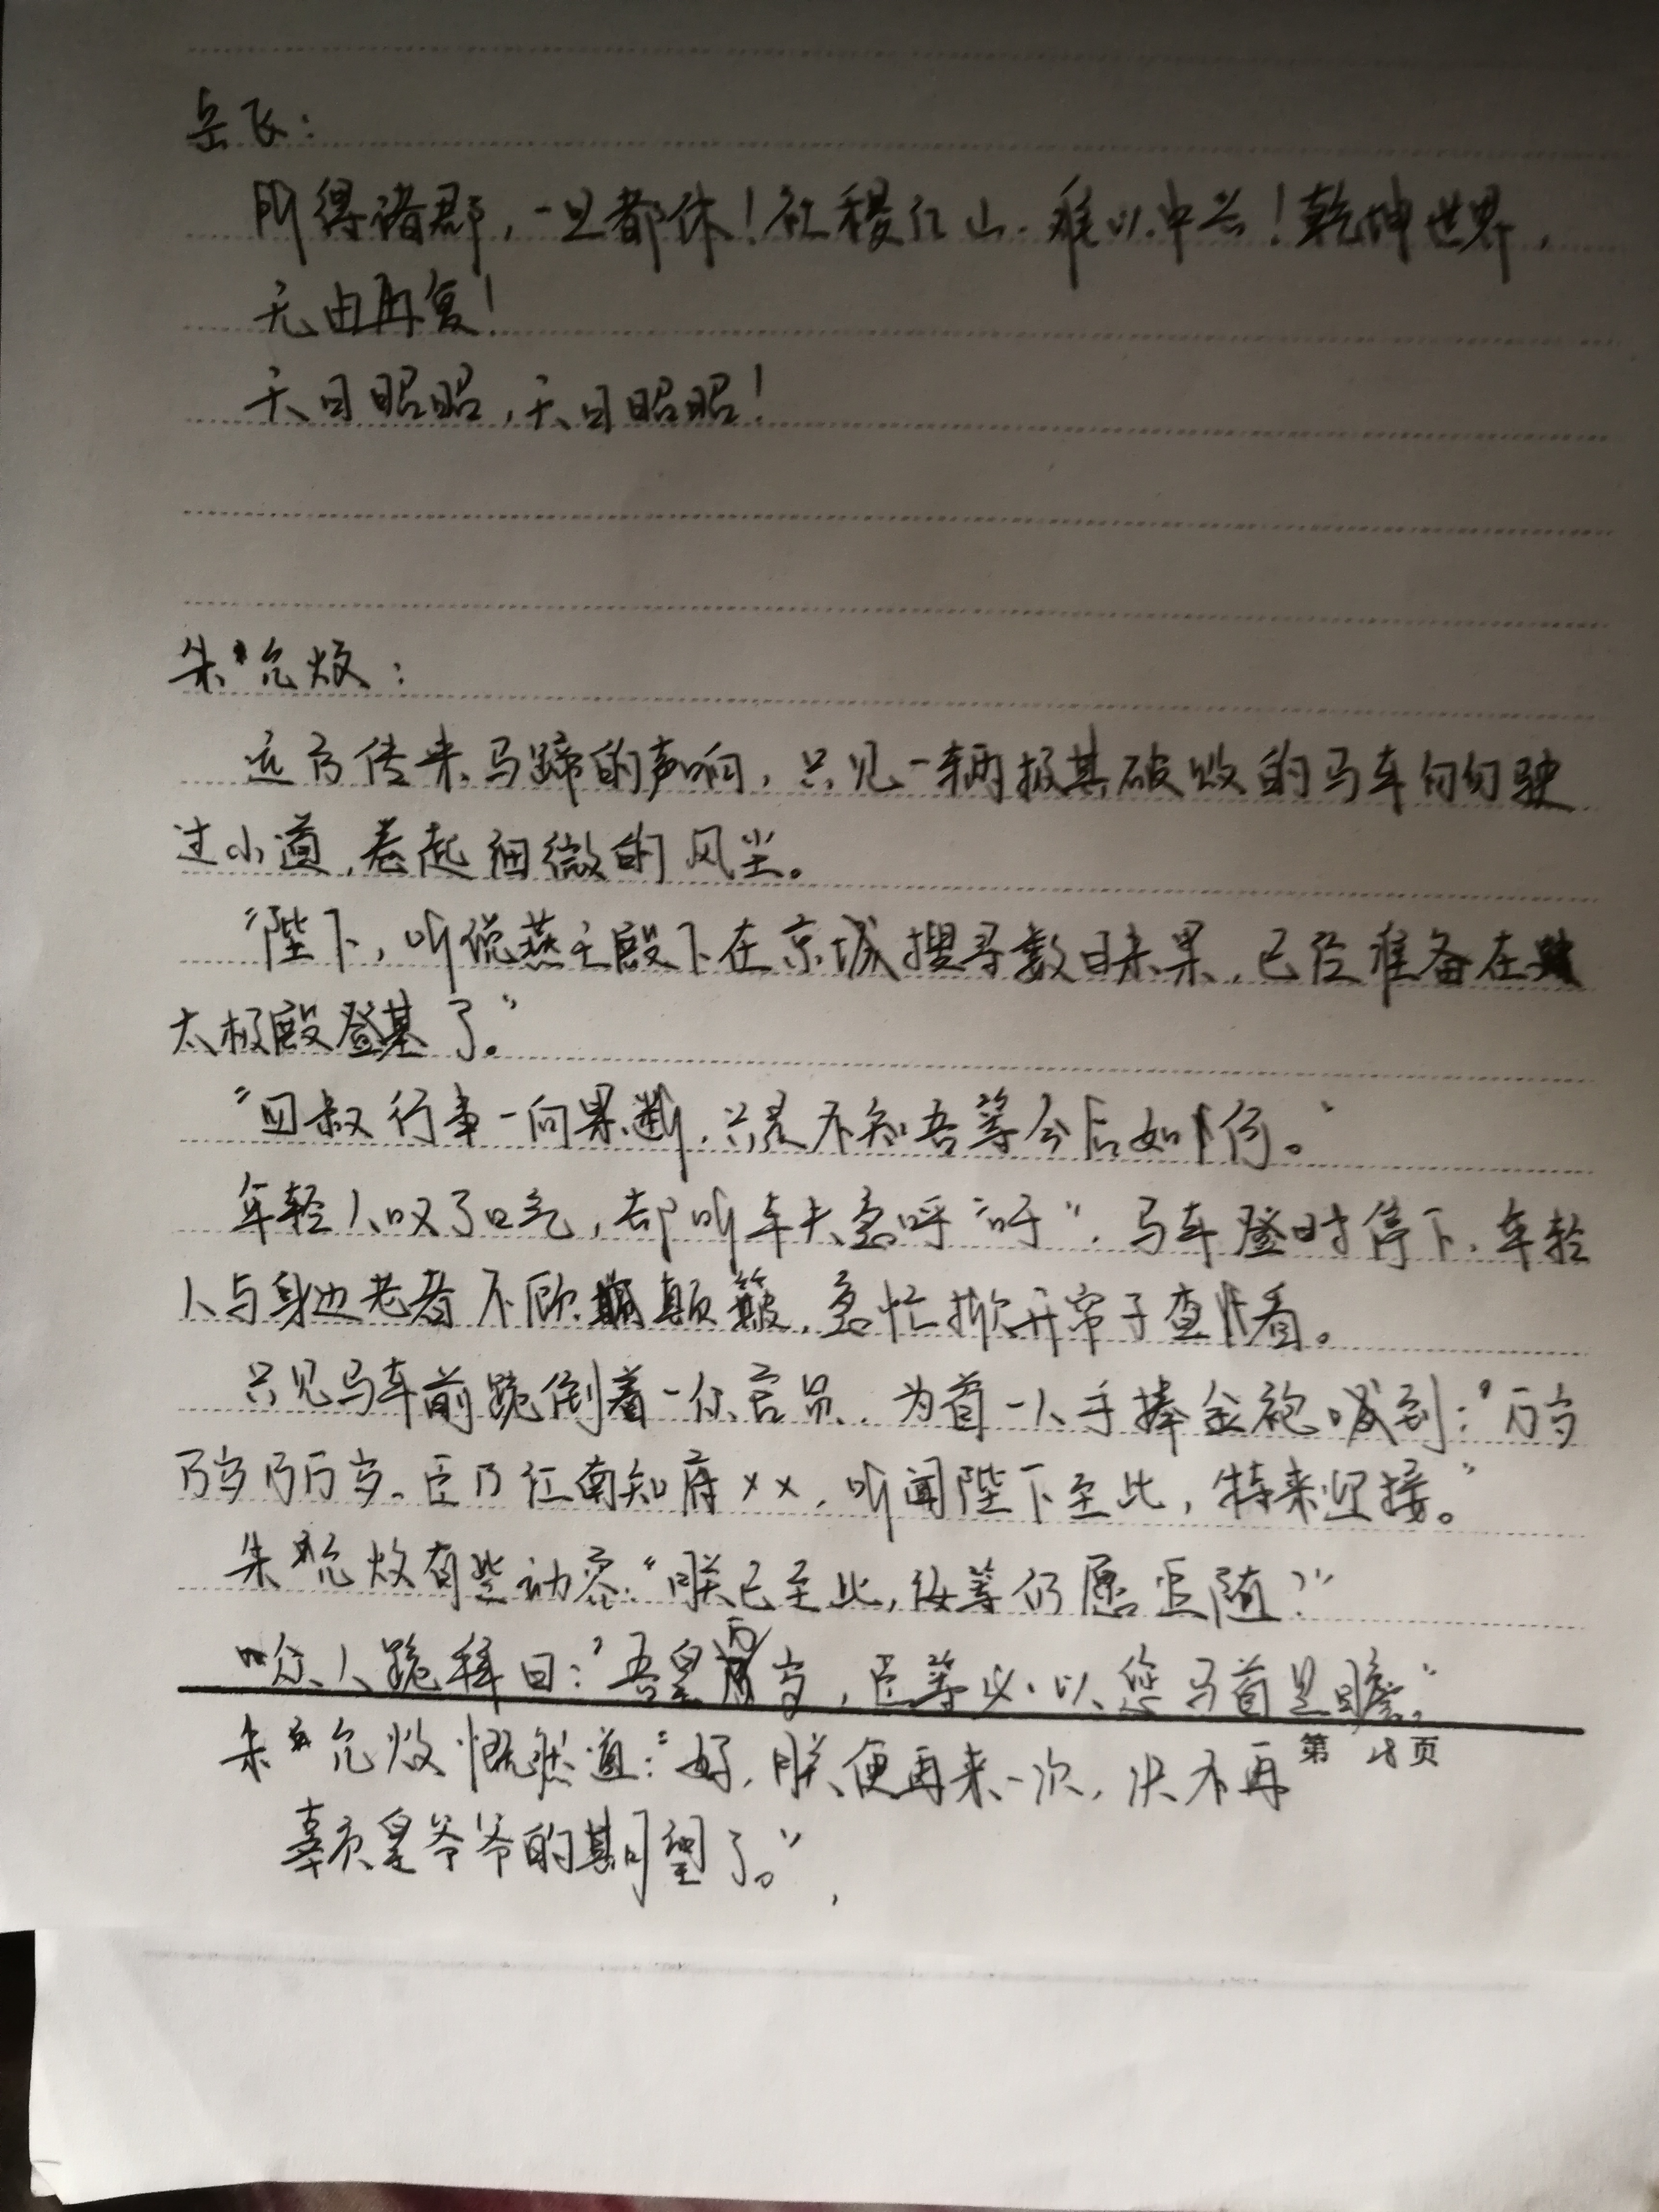 岳飞：
所得诸郡，一旦都休！社稷江山，难以中兴！乾坤世界，
无由再复！
天日昭昭，天日昭昭！
朱允炆：
远方传来马蹄的声响，只见一辆极其破败的马车匆匆驶
过小道，卷起细微的风尘。
“陛下，听说燕王殿下在京城搜寻数日未果，已经准备在
太极殿登基了。”
“四叔行事一向果断，只是不知吾等今后如何。”
年轻人叹了口气，却听车夫急呼“吁”，马车登时停下，年轻
人与身边老者不顾颠簸，急忙掀开帘子查看。
只见马车前跪倒着一众官员，为首一人手捧金袍喊到：“万岁
万岁万万岁，臣乃江南知府××，听闻陛下至此，特来迎接。”
朱允炆有些动容：“朕已至此，汝等仍愿追随？”
众人跪拜曰：“吾皇万岁，臣等必以您马首是瞻。”
朱允炆慨然道：“好，朕便再来一次，决不再
第 28 页
辜负皇爷爷的期望了。”